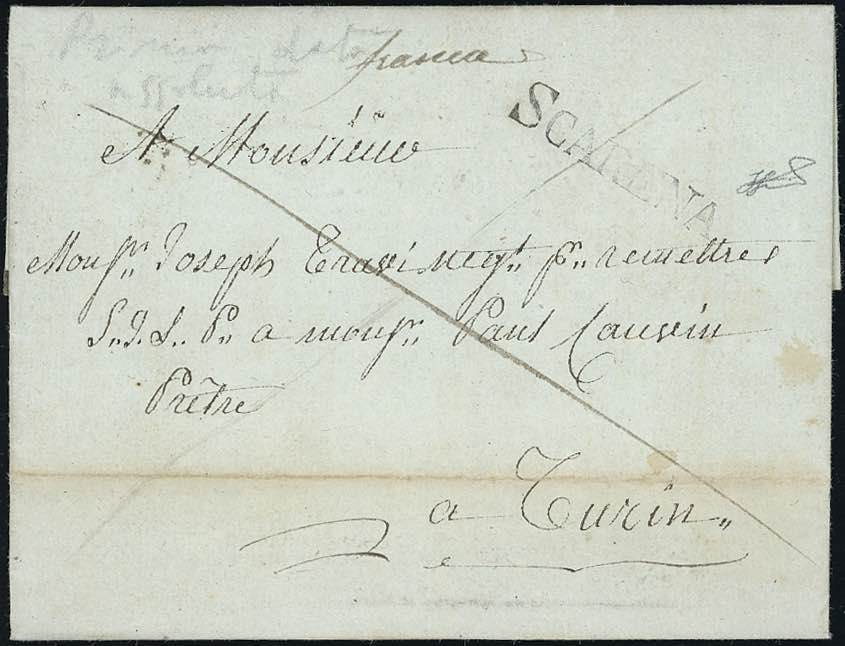 Primia data
assoluta
franca
SCARENA
A Monsieur
Monsr. Joseph Travi negt. pr. remettre
S. J. L. P. a monsr. Paul Cauvin
Prêtre
a Turin